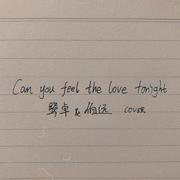 Can you feel the love tonight
&伯远 cover